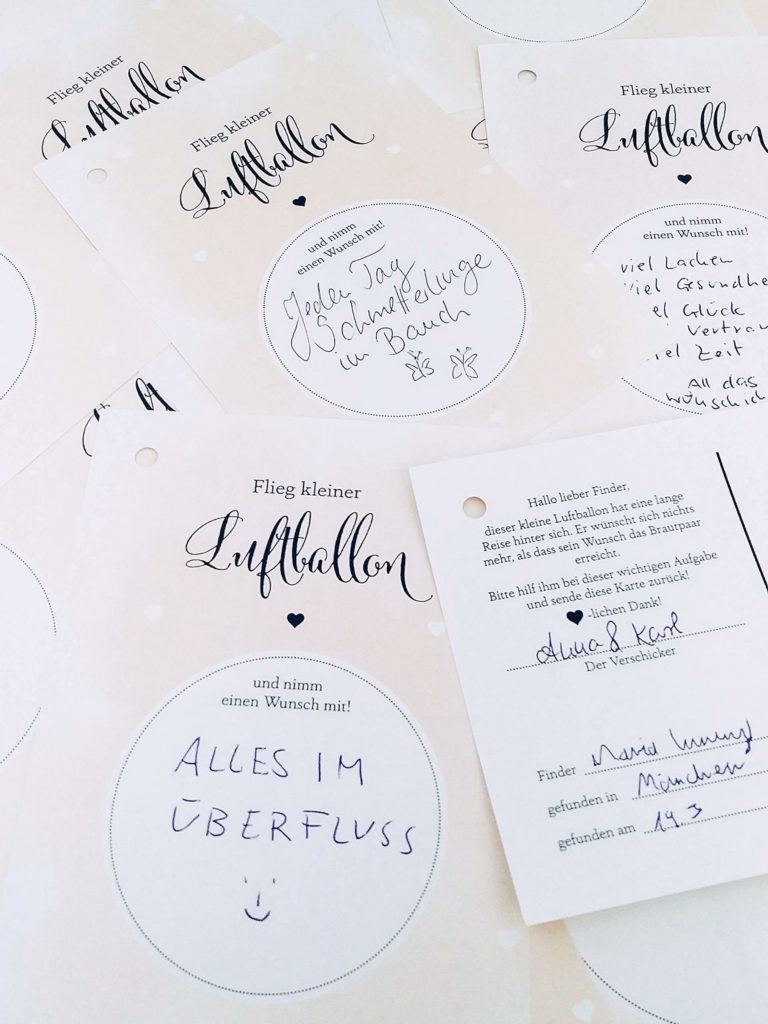 Flieg kleiner
Luftballon
Flieg kleiner
Luftballon
und nimm
einen Wunsch mit!
Jeden Tag
Schmetterlinge
im Bauch
Flieg kleiner
Luftballon
und nimm
einen Wunsch mit!
viel Lachen
viel Gesundhe
el Glück
Vertrau
iel Zeit
All das
wünsch ich
Flieg kleiner
Luftballon
und nimm
einen Wunsch mit!
ALLES IM
ÜBERFLUSS
Hallo lieber Finder,
dieser kleine Luftballon hat eine lange
Reise hinter sich. Er wünscht sich nichts
mehr, als dass sein Wunsch das Brautpaar
erreicht.
Bitte hilf ihm bei dieser wichtigen Aufgabe
und sende diese Karte zurück!
-lichen Dank!
Anna & Karl
Der Verschicker
Finder
gefunden in München
gefunden am 19.3